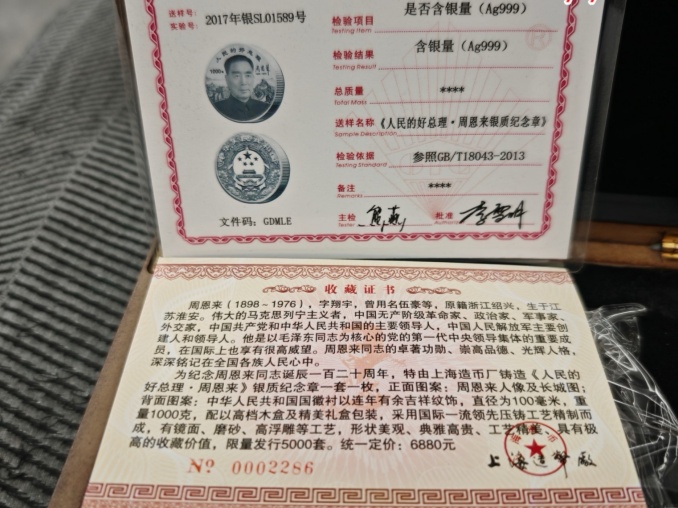 是否含银量（Ag999）
送样号:
实验号:
2017年银SL01589号
检验项目
Testing Item
检验结果
Testing Result
含银量（Ag999）
总质量
Total Mass
****
送样名称
Sample Description
《人民的好总理·周恩来银质纪念章》
检验依据
Testing Standard
参照GB/T18043-2013
备注
Remarks
****
文件码：GDMLE
主检
Tester
批准
收藏证书
周恩来（1898～1976），字翔宇，曾用名伍豪等，原籍浙江绍兴，生于江
苏淮安。伟大的马克思列宁主义者，中国无产阶级革命家、政治家、军事家、
外交家，中国共产党和中华人民共和国的主要领导人，中国人民解放军主要创
建人和领导人。他是以毛泽东同志为核心的党的第一代中央领导集体的重要成
员，在国际上也享有很高威望。周恩来同志的卓著功勋、崇高品德、光辉人格，
深深铭记在全国各族人民心中。
为纪念周恩来同志诞辰一百二十周年，特由上海造币厂铸造《人民的
好总理·周恩来》银质纪念章一套一枚，正面图案：周恩来人像及长城图；
背面图案：中华人民共和国国徽以连年有余吉祥纹饰，直径为100毫米，重
量1000克，配以高档木盒及精美礼盒包装，采用国际一流领先压铸工艺精制而
成，有镜面、磨砂、高浮雕等工艺，形状美观、典雅高贵、工艺精美，具有极
高的收藏价值，限量发行5000套。统一定价：6880元
№ 0002286
上海造币厂